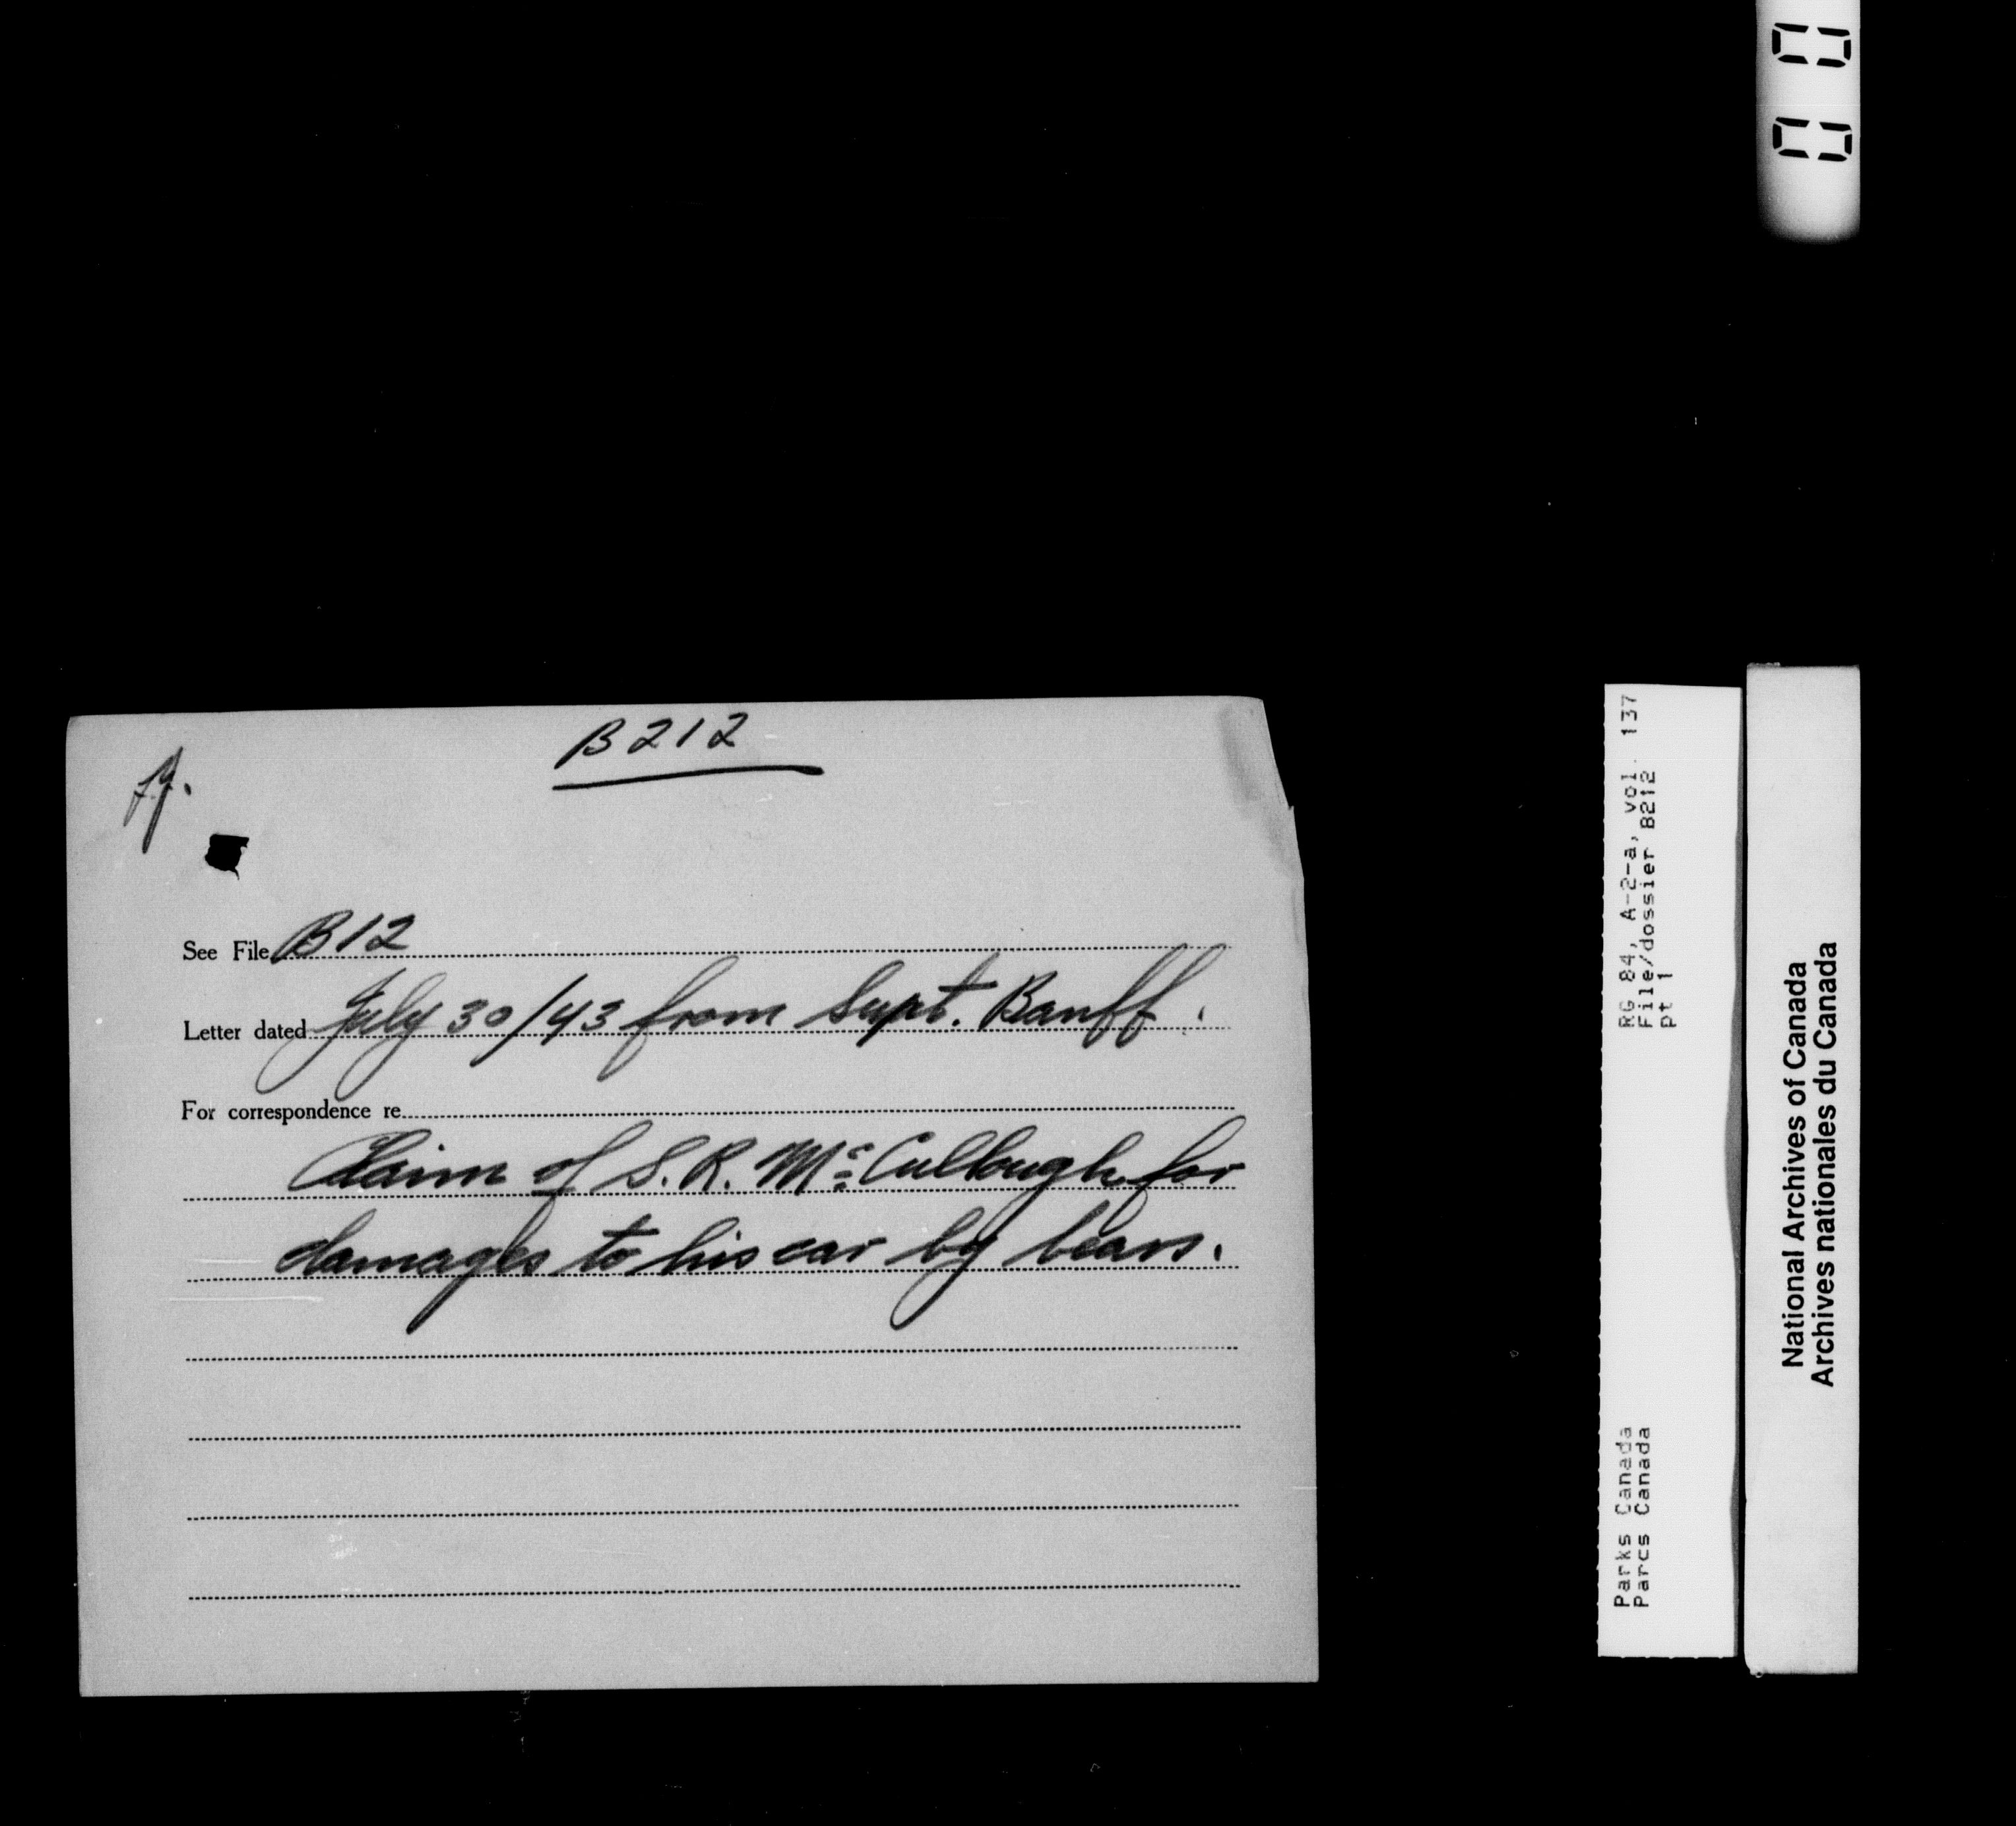 B212
See File B12
Letter dated July 30/43 from Supt. Banff.
For correspondence re
Claim of S. R. McCullough for
damages to his car by bears.
RG 84, A-2-a, vol. 137
File/dossier B212
pt 1
Parks Canada
Parcs Canada
National Archives of Canada
Archives nationales du Canada